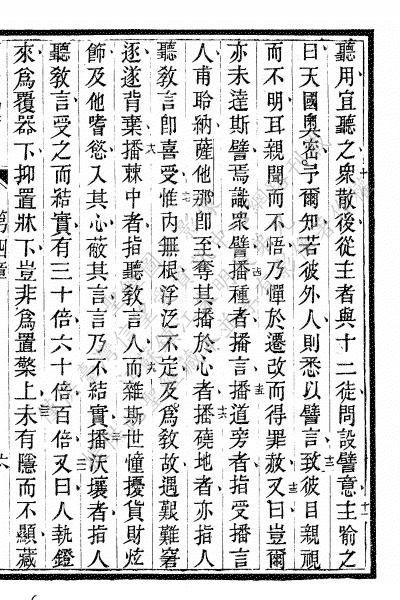 聽用宜聽之眾散後從主者與十二徒問設譬意主喻之
曰天國奧密予爾知若彼外人則悉以譬言致彼目親視
而不明耳親聞而不悟乃憚於遷改而得罪赦又曰豈爾
亦未達斯譬焉識眾譬播種者播言播道旁者指受播言
人甫聆納薩他那即至奪其播於心者播磽地者亦指人
聽教言即喜受惟内無根浮泛不定及為教故遇艱難窘
逐遂背棄播棘中者指聽教言人而雜斯世憧擾貨財炫
飾及他嗜慾入其心蔽其言言乃不結實播沃壤者指人
聽教言受之而結實有三十倍六十倍百倍又曰人執鐙
來為覆器下抑置牀下豈非為置檠上未有隱而不顯藏
第四章
六